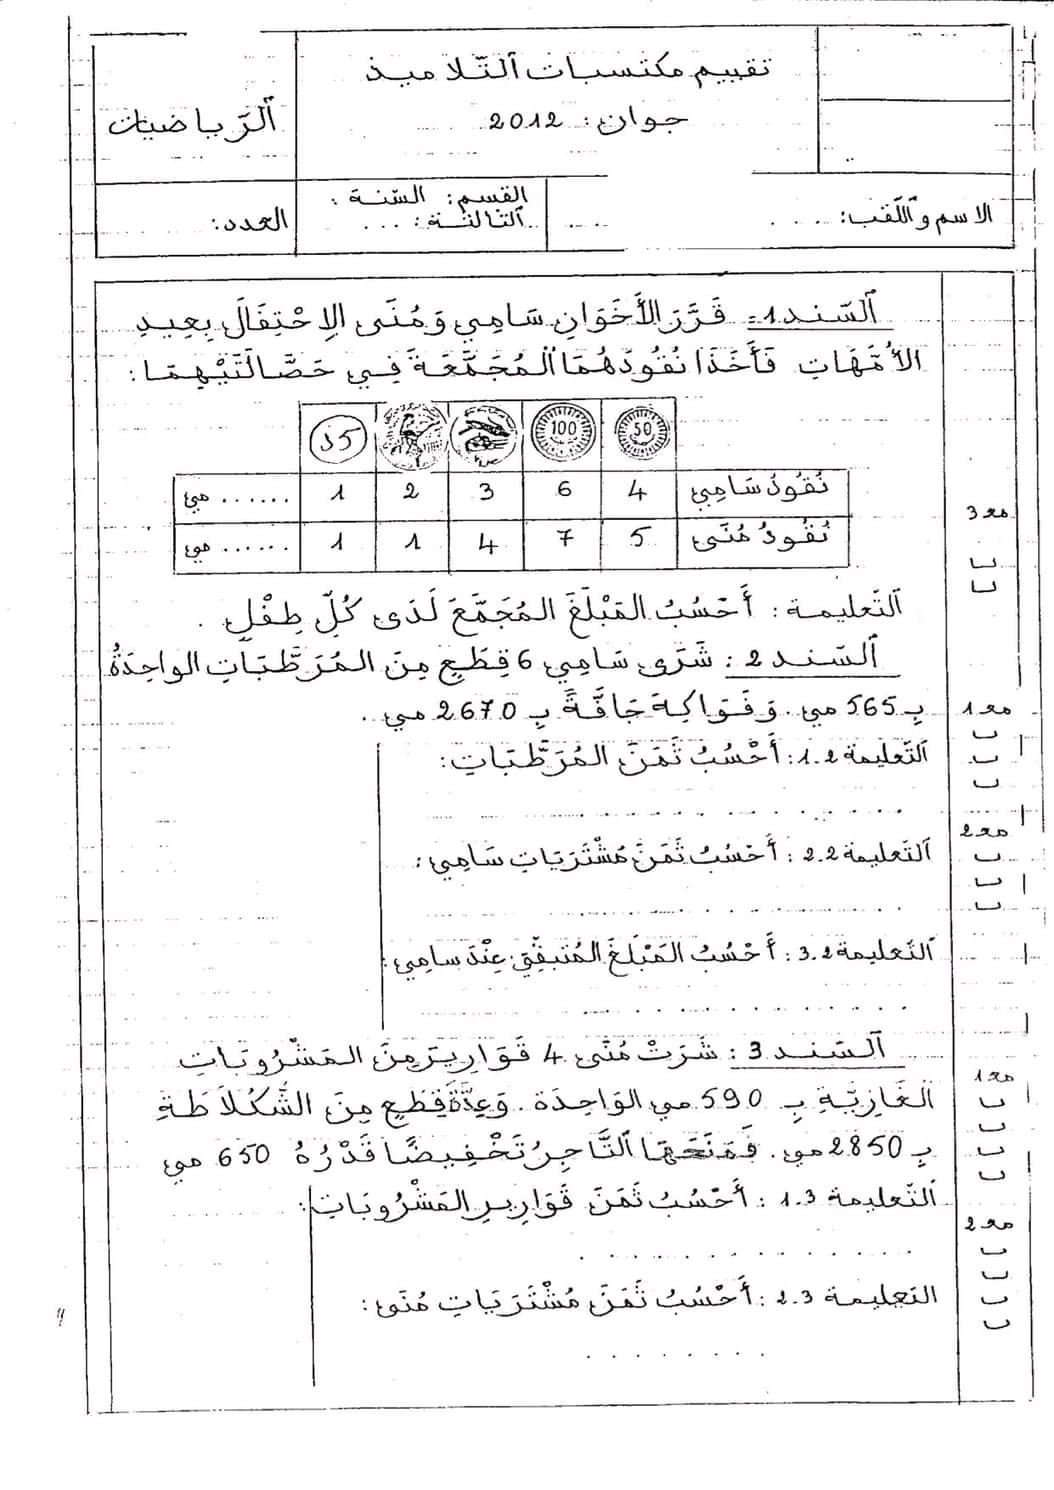 تقييم مكتسبات ٱلتّلاميذ
جوان: 2012
ٱلرّياضيات
الاسم وٱللّقب: . . . .
القسم: السّنة
ٱلثالثة: ...
العدد:
ٱلسّند 1: قَرَّرَ الأَخَوَانِ سَامِي وَمُنَى الاِحْتِفَالَ بِعِيدِ
الأُمَّهَاتِ فَأَخَذَا نُقُودَهُمَا ٱلمُجَمَّعَةَ فِي حَصَّالَتَيْهِمَا:
50 100 5د
نُقُودُ سَامِي 4 6 3 2 1 ...... مي
نُقُودُ مُنَى 5 7 4 1 1 ...... مي
مع 3
ٱلتَّعليمة: أَحْسُبُ المَبْلَغَ المُجَمَّعَ لَدَى كُلِّ طِفْلٍ.
ٱلسّند 2: شَرَى سَامِي 6 قِطَعٍ مِنَ المُرَطَّبَاتِ الواحِدَةُ
بِـ 565 مي. وَفَوَاكِهَ جَافَّةً بِـ 2670 مي.
مع 1
ٱلتَّعليمة 1.2: أَحْسُبُ ثَمَنَ المُرَطَّبَاتِ:
مع 2
ٱلتَّعليمة 2.2: أَحْسُبُ ثَمَنَ مُشْتَرَيَاتِ سَامِي:
ٱلتَّعليمة 3.2: أَحْسُبُ المَبْلَغَ المُتَبقِّيَ عِنْدَ سامِي:
ٱلسّند 3: شَرَتْ مُنَى 4 قَوَارِيرَ مِنَ المَشْرُوبَاتِ
مع 1
الغَازِيَّةِ بِـ 590 مي الوَاحِدَة. وَعِدَّةَ قِطَعٍ مِنَ الشُّكُلاَطَةِ
بِـ 2850 مي. فَمَنَحَهَا ٱلتَّاجِرُ تَخْفِيضًا قَدْرُهُ 650 مي
ٱلتَّعليمة 1.3: أَحْسُبُ ثَمَنَ قَوَارِيرِ المَشْرُوبَاتِ:
مع 2
التعليمة 2.3: أَحْسُبُ ثَمَنَ مُشْتَرَيَاتِ مُنَى: